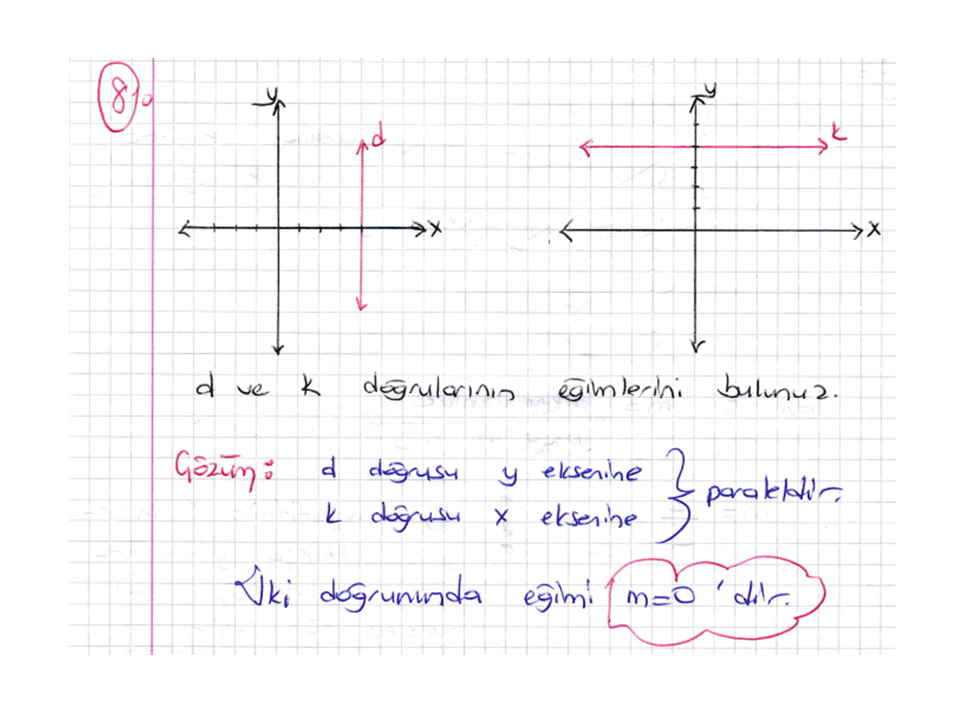 8.
y
d
x
y
k
x
d ve k doğrularının eğimlerini bulunuz.
Çözüm: d doğrusu y eksenine
k doğrusu x eksenine } paraleldir.
İki doğrununda eğimi m=0 'dır.